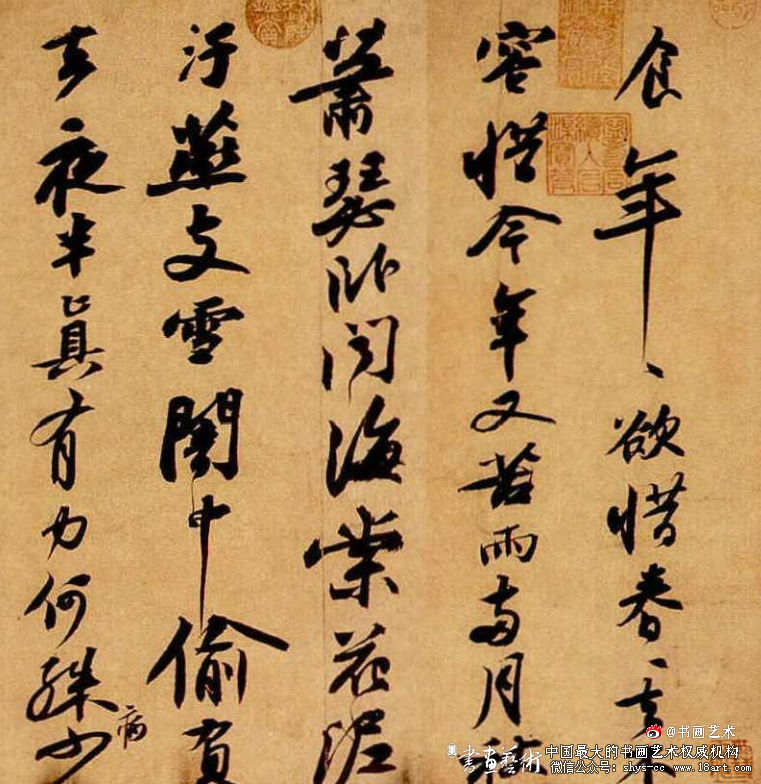 食年、欲惜春、去
容惜今年又苦雨兩月秋
蕭瑟卧聞海棠花泥
汙燕支雪闇中偷負
去夜半眞有力何殊少
病
@书画艺术
書画藝術
中国最大的书画艺术权威机构
微信公众号：shys-cc www.18art.com